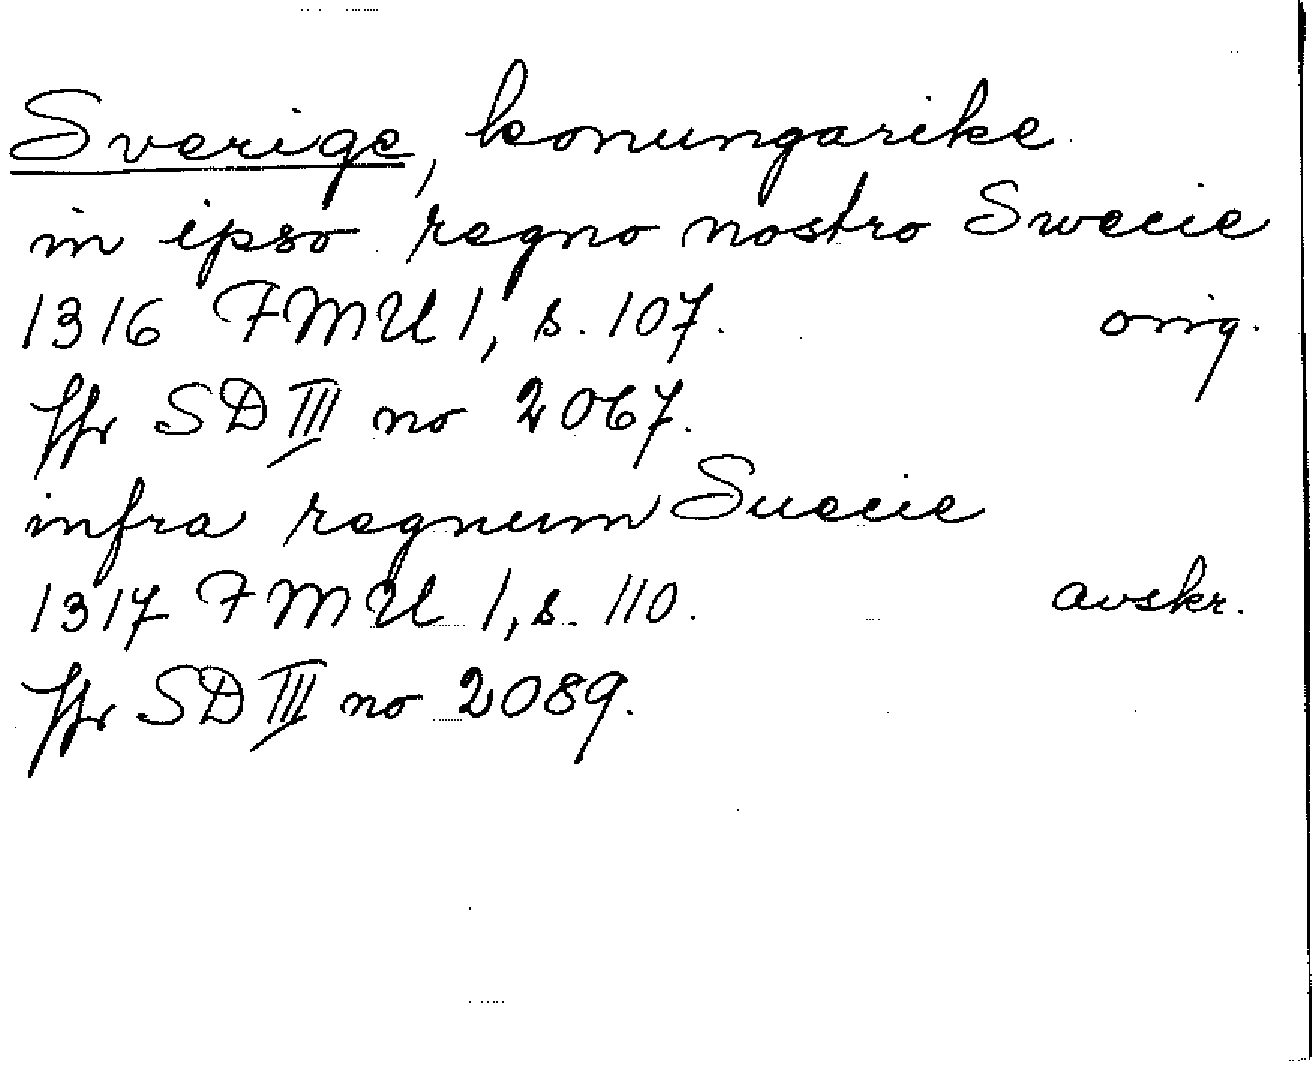 Sverige, konungarike
in ipso regno nostro Swecie
1316 FMU 1, s. 107. orig.
Jfr SD III no 2067.
infra regnum Suecie
1317 FMU 1, s. 110. avskr.
Jfr SD III no 2089.